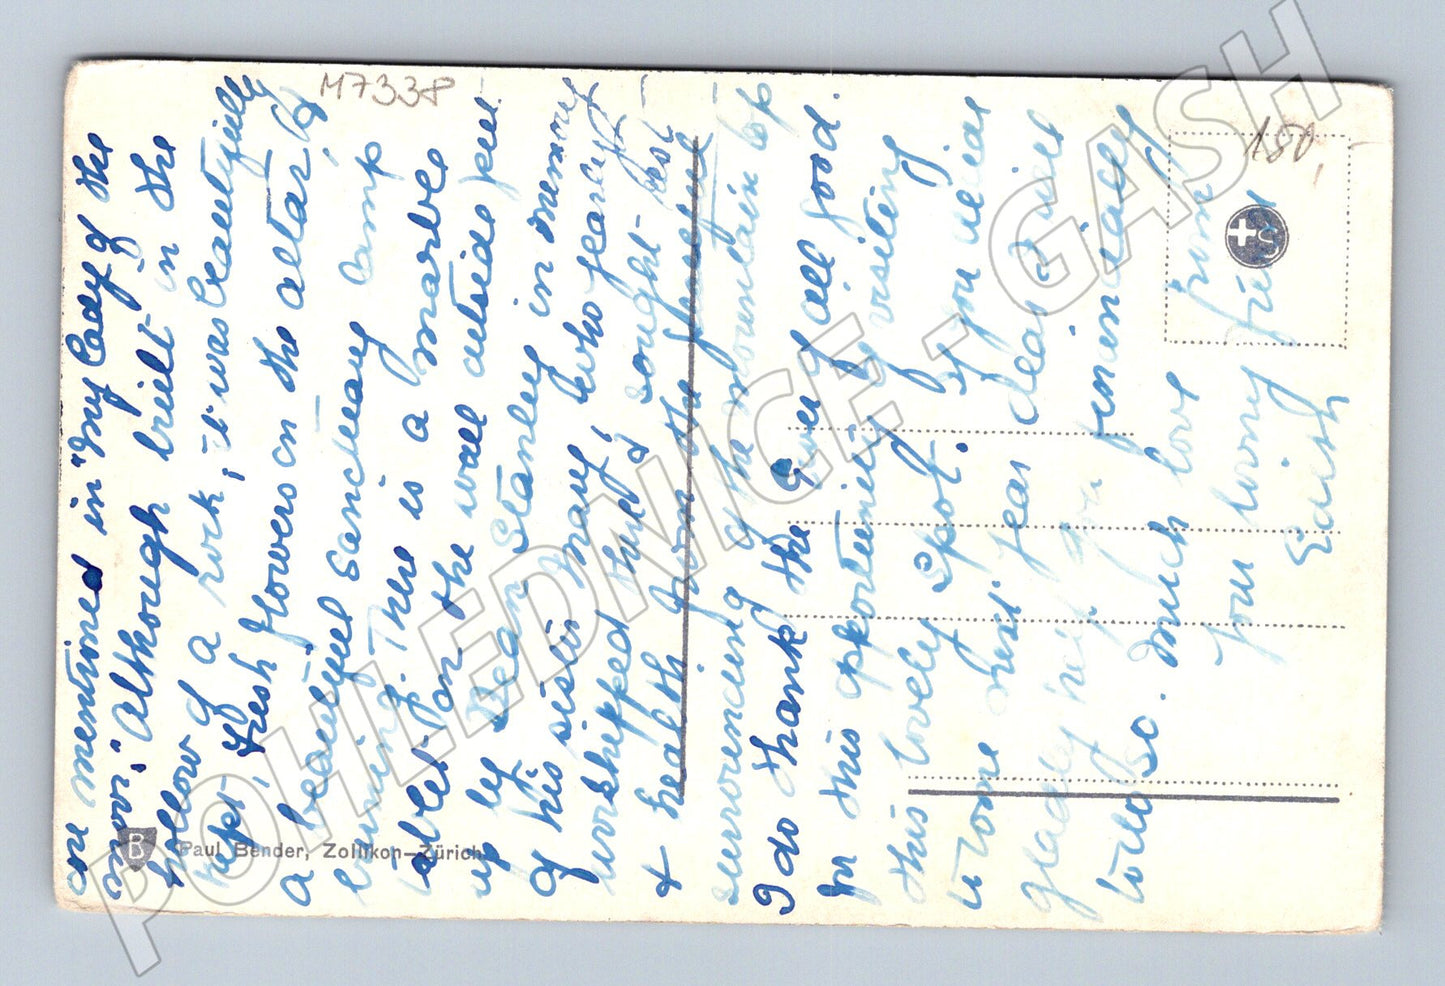 M7338
180,
one mentioned in "My Lady of the
moor". Although built in the
hollow of a rock, it was beautifully
kept, fresh flowers on the altar, &
a beautiful sanctuary lamp
burning. There is a marble
tablet on the wall outside put
up by Dean Stanley in memory
of his sister Mary, who
worshipped there & sought rest
& health from the
surrounding of the mountain top
I do thank the Giver of all good.
for this opportunity of visiting
this lovely spot. If you
come next year dear I will
gladly help you financially
to do so. Much love from
your loving friend
Edith
B
Paul Bender, Zollikon–Zürich
POHLEDNICE - GASH